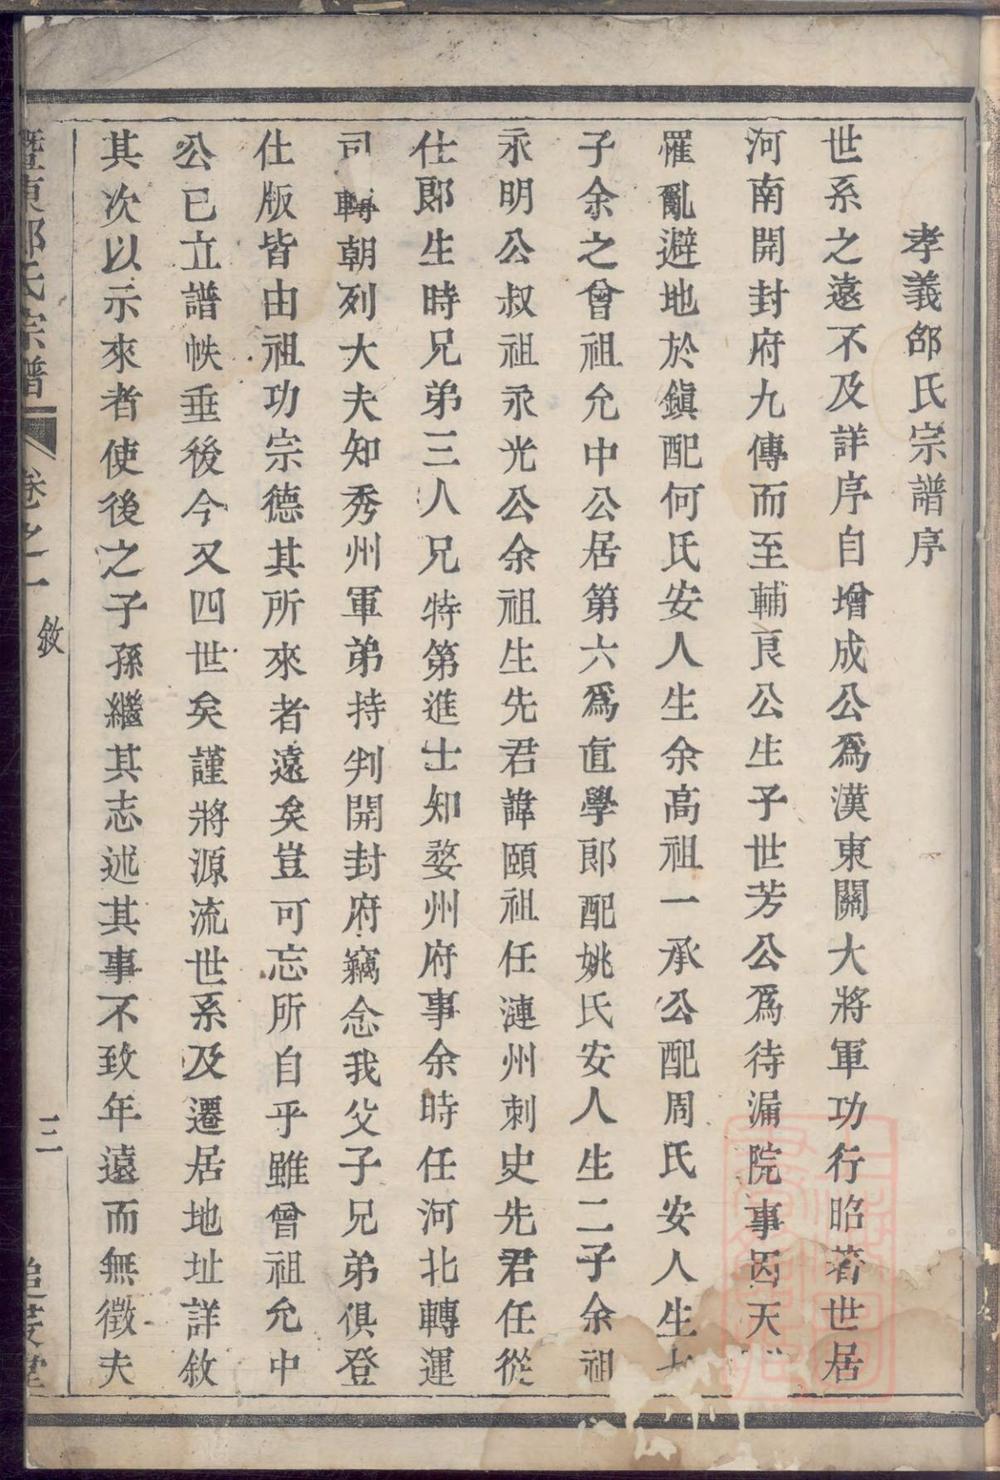 孝義邵氏宗譜序
世系之遠不及詳序自增成公爲漢東關大將軍功行昭著世居
河南開封府九傳而至輔良公生子世芳公爲待漏院事因天
罹亂避地於鎭配何氏安人生余高祖一承公配周氏安人生
子余之曾祖允中公居第六爲直學郎配姚氏安人生二子余祖
永明公叔祖永光公余祖生先君諱頤祖任漣州刺史先君任從
仕郎生時兄弟三人兄特第進士知婺州府事余時任河北轉運
司轉朝列大夫知秀州軍弟持判開封府竊念我父子兄弟俱登
仕版皆由祖功宗德其所來者遠矣豈可忘所自乎雖曾祖允中
公已立譜帙垂後今又四世矣謹將源流世系及遷居地址詳敘
其次以示來者使後之子孫繼其志述其事不致年遠而無徵夫
暨東邵氏宗譜 卷之一 敘 三